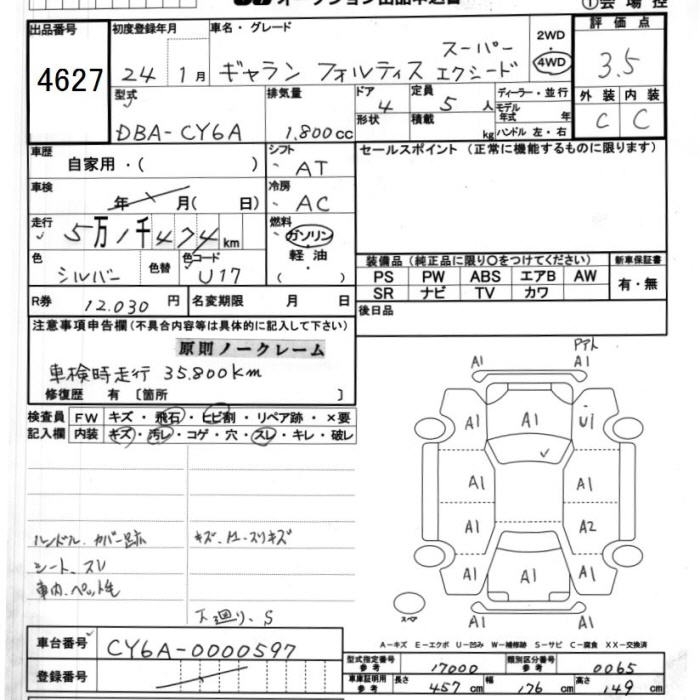 オークション出品申込書 ①会場控
出品番号 初度登録年月 車名・グレード 2WD 評価点
4627 24 1月 ギャラン フォルティス スーパー エクシード 4WD 3.5
型式 排気量 ドア 定員 ディーラー・並行 外装 内装
DBA-CY6A 1,800cc 4 5人 モデル年式 年 C C
形状 積載 kg ハンドル 左・右
車歴 自家用・( ) シフト AT セールスポイント (正常に機能するものに限ります)
車検 年 月( 日) 冷房 AC
走行 5万1千474km 燃料 ガソリン 軽油 ( )
色 シルバー 色替 色コード U17
装備品 (純正品に限り○をつけてください) 新車保証書
PS PW ABS エアB AW 有・無
SR ナビ TV カワ
R券 12,030円 名変期限 月 日 後日品
注意事項申告欄 (不具合内容等は具体的に記入して下さい)
原則ノークレーム
車検時走行 35,800km
修復歴 有 〔箇所 〕
検査員 FW キズ・飛石・ヒビ割・リペア跡・×要
記入欄 内装 キズ・汚レ・コゲ・穴・スレ・キレ・破レ
A1 A1
A1 A1 U1
A1 A1
A1 A2
A1 A1 A1
スペア
シート、スレ
下廻り、S
A-キズ E-エクボ U-凹み W-補修跡 S-サビ C-腐食 XX-交換済
車台番号 CY6A-0000597
登録番号
型式指定番号 参考 17000 類別区分番号 参考 0065
車庫証明用 参考 長さ 457cm 幅 176cm 高さ 149cm